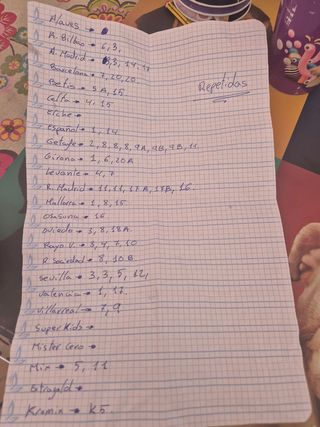 Alaves →
A. Bilbao → 6, 3,
A. Madrid → 3, 14, 17
Barcelona → 7, 20, 20
Betis → 5A, 15
Celta → 4, 15
Elche →
Español → 1, 14
Getafe → 2, 8, 8, 8, 9A, 9B, 9B, 11.
Girona → 1, 6, 20A
Levante → 4, 7
R. Madrid → 11, 11, 17A, 18B, 16.
Mallorca → 1, 8, 15
Osasuna → 16
Oviedo → 3, 8, 18A
Rayo V. → 3, 4, 7, 10
R. Sociedad → 8, 10B
Sevilla → 3, 3, 5, 12,
Valencia → 1, 17
Villarreal → 7, 9,
SuperKids →
Mister Cero →
Mix → 5, 11
Extragold →
Kromix → K5.
Repetidas